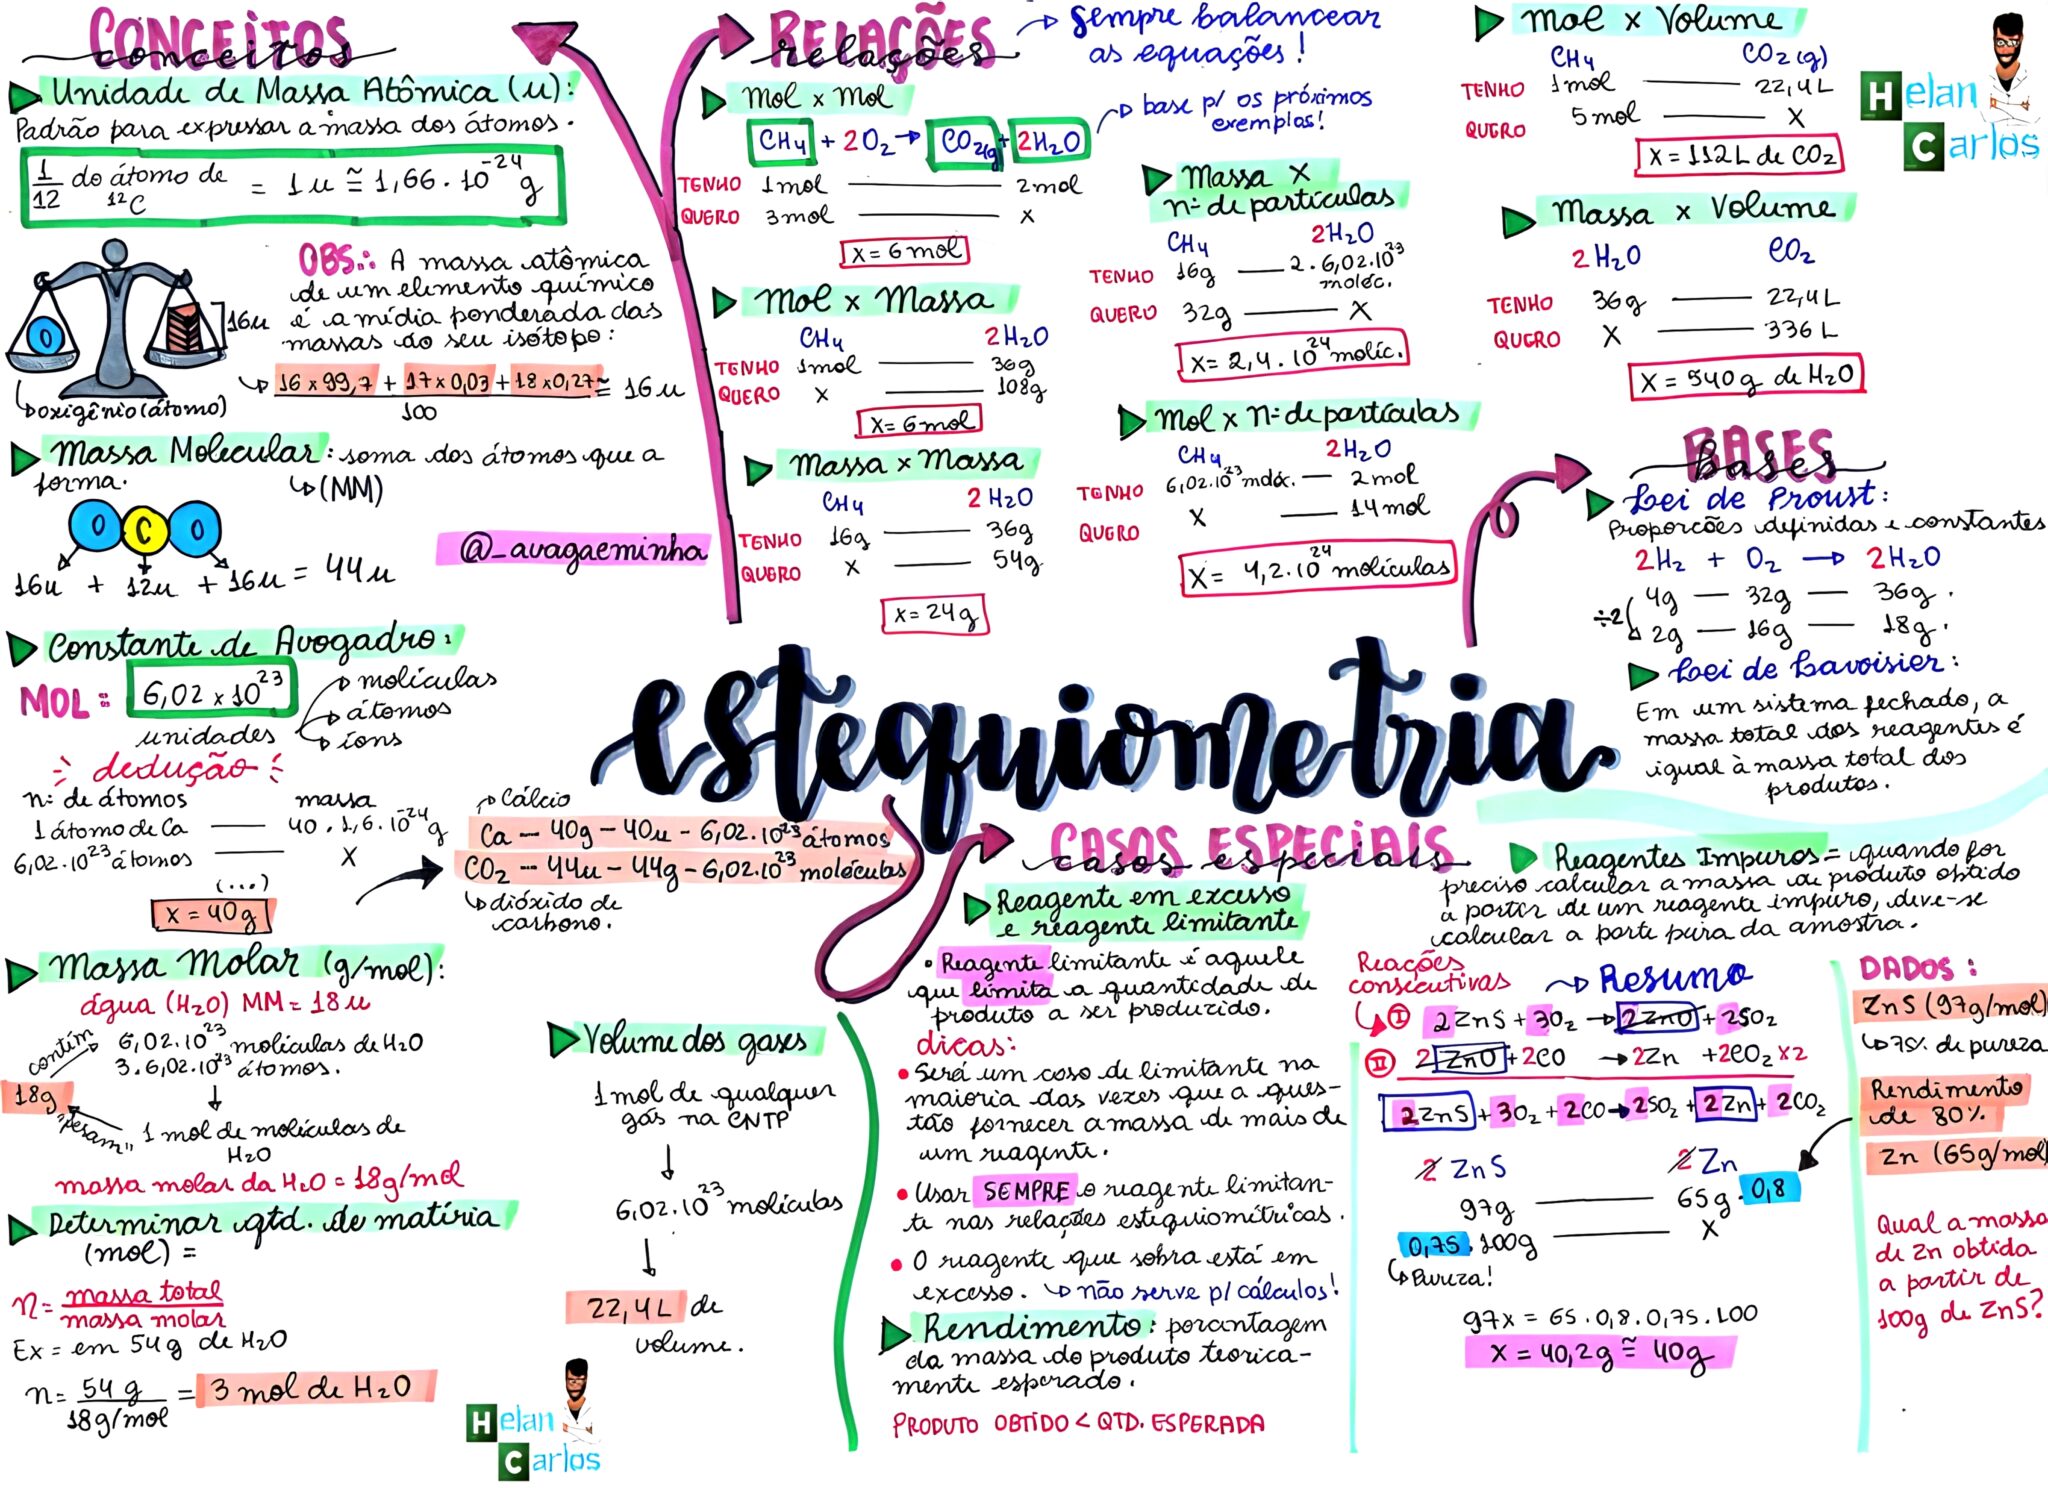 CONCEITOS
conceitos
Unidade de Massa Atômica (u):
Padrão para expressar a massa dos átomos.
1/12 do átomo de ¹²C = 1u ≅ 1,66 . 10⁻²⁴ g
OBS.: A massa atômica
de um elemento químico
é a média ponderada das
massas do seu isótopo:
O
16u
16 x 99,7 + 17 x 0,03 + 18 x 0,27 ≅ 16u
100
oxigênio (átomo)
Massa Molecular: soma dos átomos que a
forma.
(MM)
O C O
16u + 12u + 16u = 44u
@_avagaeminha
Constante de Avogadro:
MOL = 6,02 x 10²³
unidades
moléculas
átomos
íons
dedução
nº de átomos massa
1 átomo de Ca — 40 . 1,6 . 10⁻²⁴ g
6,02 . 10²³ átomos — X
(...)
X = 40g
Cálcio
Ca – 40g – 40u – 6,02 . 10²³ átomos
CO₂ – 44u – 44g – 6,02 . 10²³ moléculas
dióxido de
carbono.
Massa Molar (g/mol):
água (H₂O) MM = 18u
contém
6,02 . 10²³ moléculas de H₂O
3 . 6,02 . 10²³ átomos.
18g
"pesam"
1 mol de moléculas de
H₂O
massa molar da H₂O = 18g/mol
Determinar qtd. de matéria
(mol) =
n = massa total
massa molar
Ex = em 54g de H₂O
n = 54 g = 3 mol de H₂O
18g/mol
Helan
Carlos
Volume dos gases
1 mol de qualquer
gás na CNTP
6,02 . 10²³ moléculas
22,4L de
volume.
RELAÇÕES
relações
Sempre balancear
as equações!
Mol x mol
base p/ os próximos
exemplos!
CH₄ + 2O₂ → CO₂(g) + 2H₂O
TENHO 1mol — 2mol
QUERO 3mol — X
X = 6mol
Mol x Massa
CH₄ 2H₂O
TENHO 1mol — 36g
QUERO X — 108g
X = 6mol
Massa x Massa
CH₄ 2H₂O
TENHO 16g — 36g
QUERO X — 54g
X = 24g
Massa X
nº de partículas
CH₄ 2H₂O
TENHO 16g — 2 . 6,02 . 10²³
moléc.
QUERO 32g — X
X = 2,4 . 10²⁴ moléc.
Mol x nº de partículas
CH₄ 2H₂O
TENHO 6,02 . 10²³ moléc. — 2mol
QUERO X — 14mol
X = 4,2 . 10²⁴ moléculas
mol x Volume
CH₄ CO₂(g)
TENHO 1mol — 22,4L
QUERO 5mol — X
X = 112L de CO₂
Helan
Carlos
Massa x Volume
2H₂O CO₂
TENHO 36g — 22,4L
QUERO X — 336L
X = 540g de H₂O
BASES
bases
Lei de Proust:
Proporções definidas e constantes
2H₂ + O₂ → 2H₂O
4g — 32g — 36g.
÷2
2g — 16g — 18g.
Lei de Lavoisier:
Em um sistema fechado, a
massa total dos reagentes é
igual à massa total dos
produtos.
estequiometria
CASOS ESPECIAIS
casos especiais
Reagente em excesso
e reagente limitante
• Reagente limitante é aquele
que limita a quantidade de
produto a ser produzido.
dicas:
• Será um caso de limitante na
maioria das vezes que a ques-
tão fornecer a massa de mais de
um reagente.
• Usar SEMPRE o reagente limitan-
te nas relações estequiométricas.
• O reagente que sobra está em
excesso. não serve p/ cálculos!
Rendimento: porcantagem
da massa do produto teorica-
mente esperado.
PRODUTO OBTIDO < QTD. ESPERADA
Reagentes Impuros = quando for
preciso calcular a massa de produto obtido
a partir de um reagente impuro, deve-se
calcular a parte pura da amostra.
Reações
consecutivas
Resumo
I 2ZnS + 3O₂ → 2ZnO + 2SO₂
II 2ZnO + 2CO → 2Zn + 2CO₂ x2
2ZnS + 3O₂ + 2CO → 2SO₂ + 2Zn + 2CO₂
2 ZnS 2 Zn
97g — 65g . 0,8
0,75 . 100g — X
Pureza!
97x = 65 . 0,8 . 0,75 . 100
X = 40,2g ≅ 40g
DADOS:
ZnS (97g/mol)
75% de pureza
Rendimento
de 80%
Zn (65g/mol)
Qual a massa
de Zn obtida
a partir de
100g de ZnS?